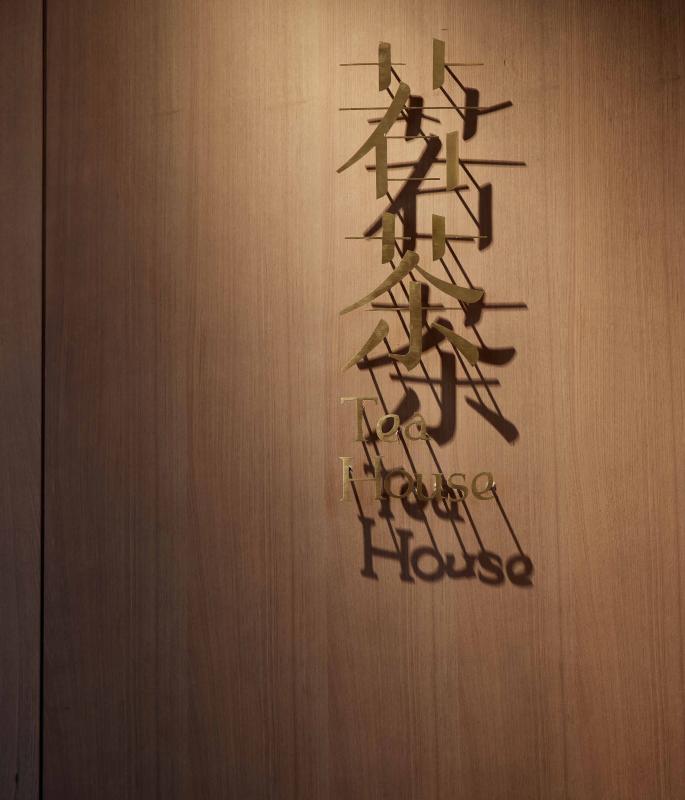 若
茶
Tea
House